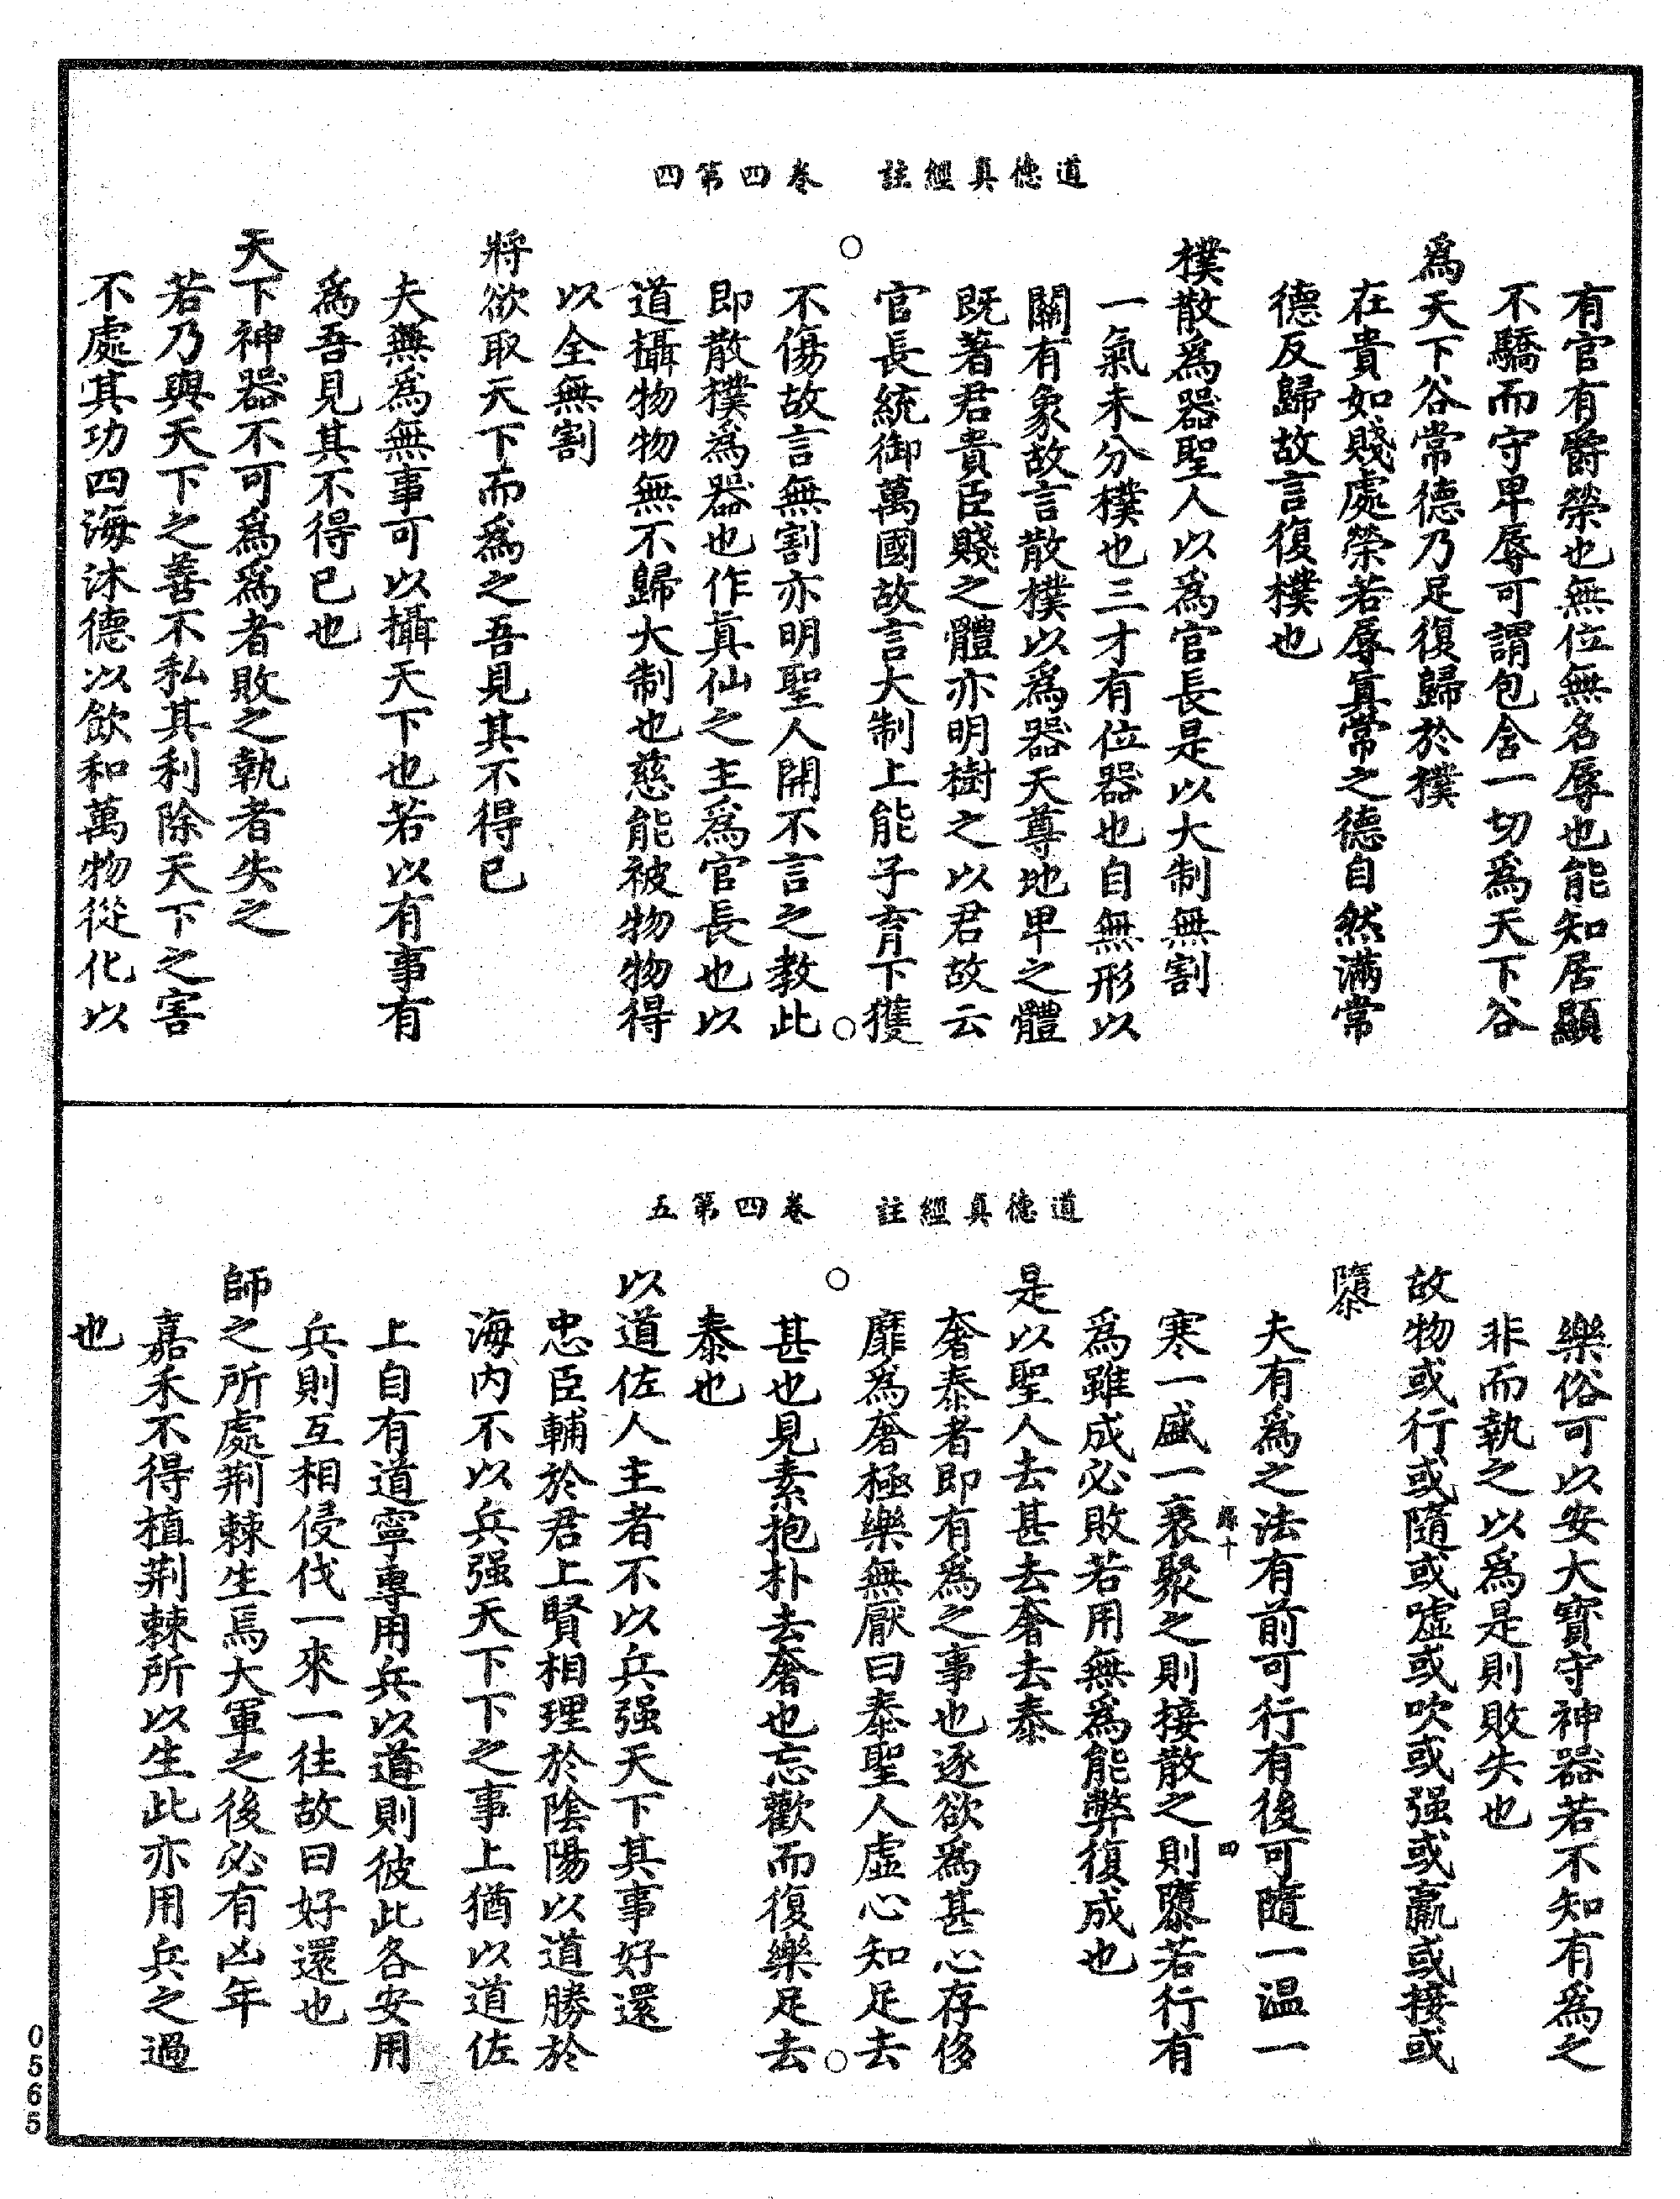 道德真經註　卷四第四
有官有爵榮也無位無名辱也能知居顯
不驕而守卑辱可謂包含一切爲天下谷
爲天下谷常德乃足復歸於樸
在貴如賤處榮若辱真常之德自然滿常
德反歸故言復樸也
樸散爲器聖人以爲官長是以大制無割
一氣未分樸也三才有位器也自無形以
關有象故言散樸以爲器天尊地卑之體
既著君貴臣賤之體亦明樹之以君故云
官長統御萬國故言大制上能子育下獲
不傷故言無割亦明聖人開不言之教此
即散樸爲器也作真仙之主爲官長也以
道攝物物無不歸大制也慈能被物物得
以全無割
將欲取天下而爲之吾見其不得已
夫無爲無事可以攝天下也若以有事有
爲吾見其不得已也
天下神器不可爲爲者敗之執者失之
若乃與天下之善不私其利除天下之害
不處其功四海沐德以飲和萬物從化以
道德真經註　卷四第五
樂俗可以安大寶守神器若不知有爲之
非而執之以爲是則敗失也
故物或行或隨或噓或吹或强或羸或接或
隳
夫有爲之法有前可行有後可隨一温一
寒一盛一衰聚之則接散之則隳若行有
爲雖成必敗若用無爲能弊復成也
是以聖人去甚去奢去泰
奢泰者即有爲之事也逐欲爲甚心存侈
靡爲奢極樂無厭曰泰聖人虛心知足去
甚也見素抱朴去奢也忘歡而復樂足去
泰也
以道佐人主者不以兵强天下其事好還
忠臣輔於君上賢相理於陰陽以道勝於
海内不以兵强天下下之事上猶以道佐
上自有道寧專用兵以道則彼此各安用
兵則互相侵伐一來一往故曰好還也
師之所處荆棘生焉大軍之後必有凶年
嘉禾不得植荆棘所以生此亦用兵之過
也
0565